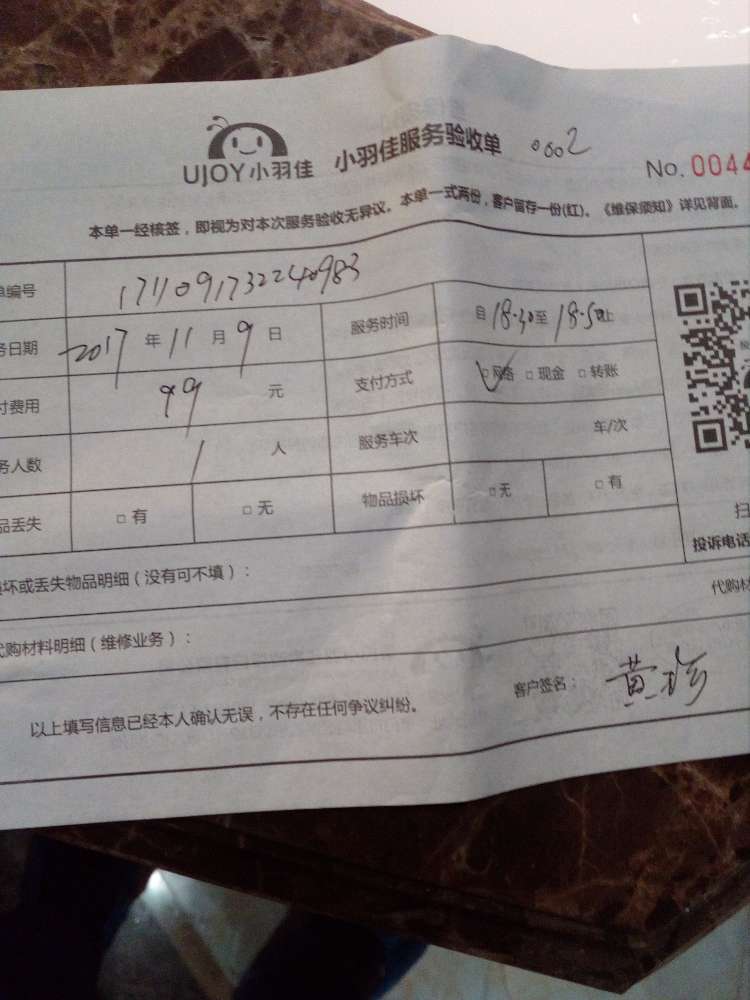 UJOY小羽佳 小羽佳服务验收单 0002
No. 0044
本单一经核签，即视为对本次服务验收无异议。本单一式两份，客户留存一份(红)。《维保须知》详见背面。
单编号 17110917322240983
务日期 2017 年 11 月 9 日 服务时间 自 18:30 至 18:50 止
付费用 99 元 支付方式 □网络 □现金 □转账
务人数 1 人 服务车次 车/次
品丢失 □有 □无 物品损坏 □无 □有
扫
投诉电话
损坏或丢失物品明细（没有可不填）：
代购材
代购材料明细（维修业务）：
客户签名： 黄珍
以上填写信息已经本人确认无误，不存在任何争议纠纷。